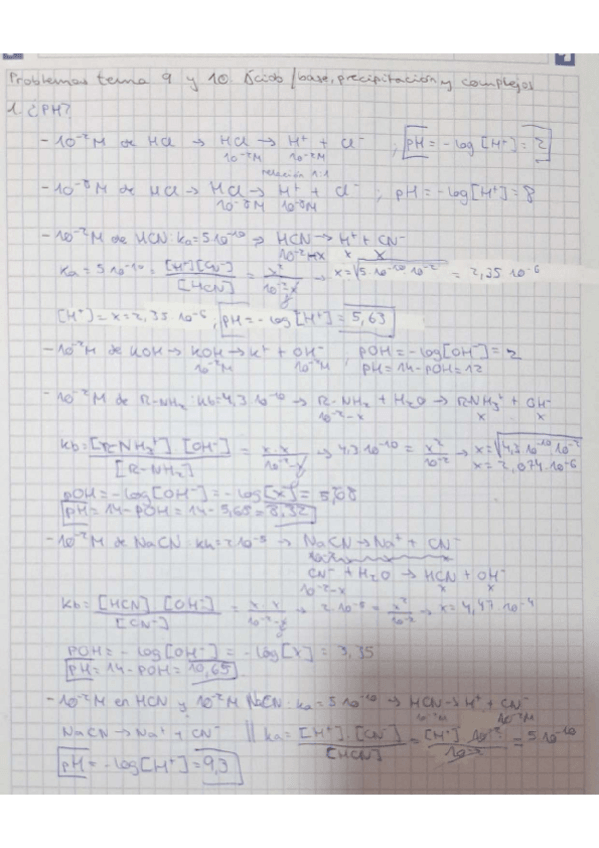 Problemas tema 9 y 10. Ácido/base, precipitación y complejos
1. ¿PH?
- 10⁻²M de HCl → HCl → H⁺ + Cl⁻ ; pH = -log [H⁺] = 2
10⁻²M 10⁻²M
relación 1:1
- 10⁻⁸M de HCl → HCl → H⁺ + Cl⁻ ; pH = -log[H⁺] = 8
10⁻⁸M 10⁻⁸M
- 10⁻²M de HCN: Ka = 5·10⁻¹⁰ → HCN → H⁺ + CN⁻
10⁻²-x x x
Ka = 5·10⁻¹⁰ = [H⁺][CN⁻] / [HCN] = x² / 10⁻²-x → x = √5·10⁻¹⁰·10⁻² = 2,35·10⁻⁶
[H⁺] = x = 2,35·10⁻⁶ ; pH = -log [H⁺] = 5,63
- 10⁻²M de KOH → KOH → K⁺ + OH⁻ ; pOH = -log[OH⁻] = 2
10⁻²M 10⁻²M pH = 14 - pOH = 12
- 10⁻²M de R-NH₂: Kb = 4,3·10⁻¹⁰ → R-NH₂ + H₂O → RNH₃⁺ + OH⁻
10⁻²-x x x
Kb = [R-NH₃⁺] [OH⁻] / [R-NH₂] = x·x / 10⁻²-x → 4,3·10⁻¹⁰ = x² / 10⁻² → x = √4,3·10⁻¹⁰·10⁻²
x = 2,074·10⁻⁶
pOH = -log[OH⁻] = -log[x] = 5,68
pH = 14 - pOH = 14 - 5,68 = 8,32
- 10⁻²M de NaCN: Kh = 2·10⁻⁵ → NaCN → Na⁺ + CN⁻
CN⁻ + H₂O → HCN + OH⁻
10⁻²-x x x
Kb = [HCN] [OH⁻] / [CN⁻] = x·x / 10⁻²-x → 2·10⁻⁵ = x² / 10⁻² → x = 4,47·10⁻⁴
POH = -log [OH⁻] = -log[x] = 3,35
pH = 14 - POH = 10,65
- 10⁻²M en HCN y 10⁻²M NaCN: Ka = 5·10⁻¹⁰ → HCN → H⁺ + CN⁻
10⁻²M 10⁻²M
NaCN → Na⁺ + CN⁻ || Ka = [H⁺]·[CN⁻] / [HCN] = [H⁺] 10⁻² / 10⁻² = 5·10⁻¹⁰
pH = -log[H⁺] = 9,3